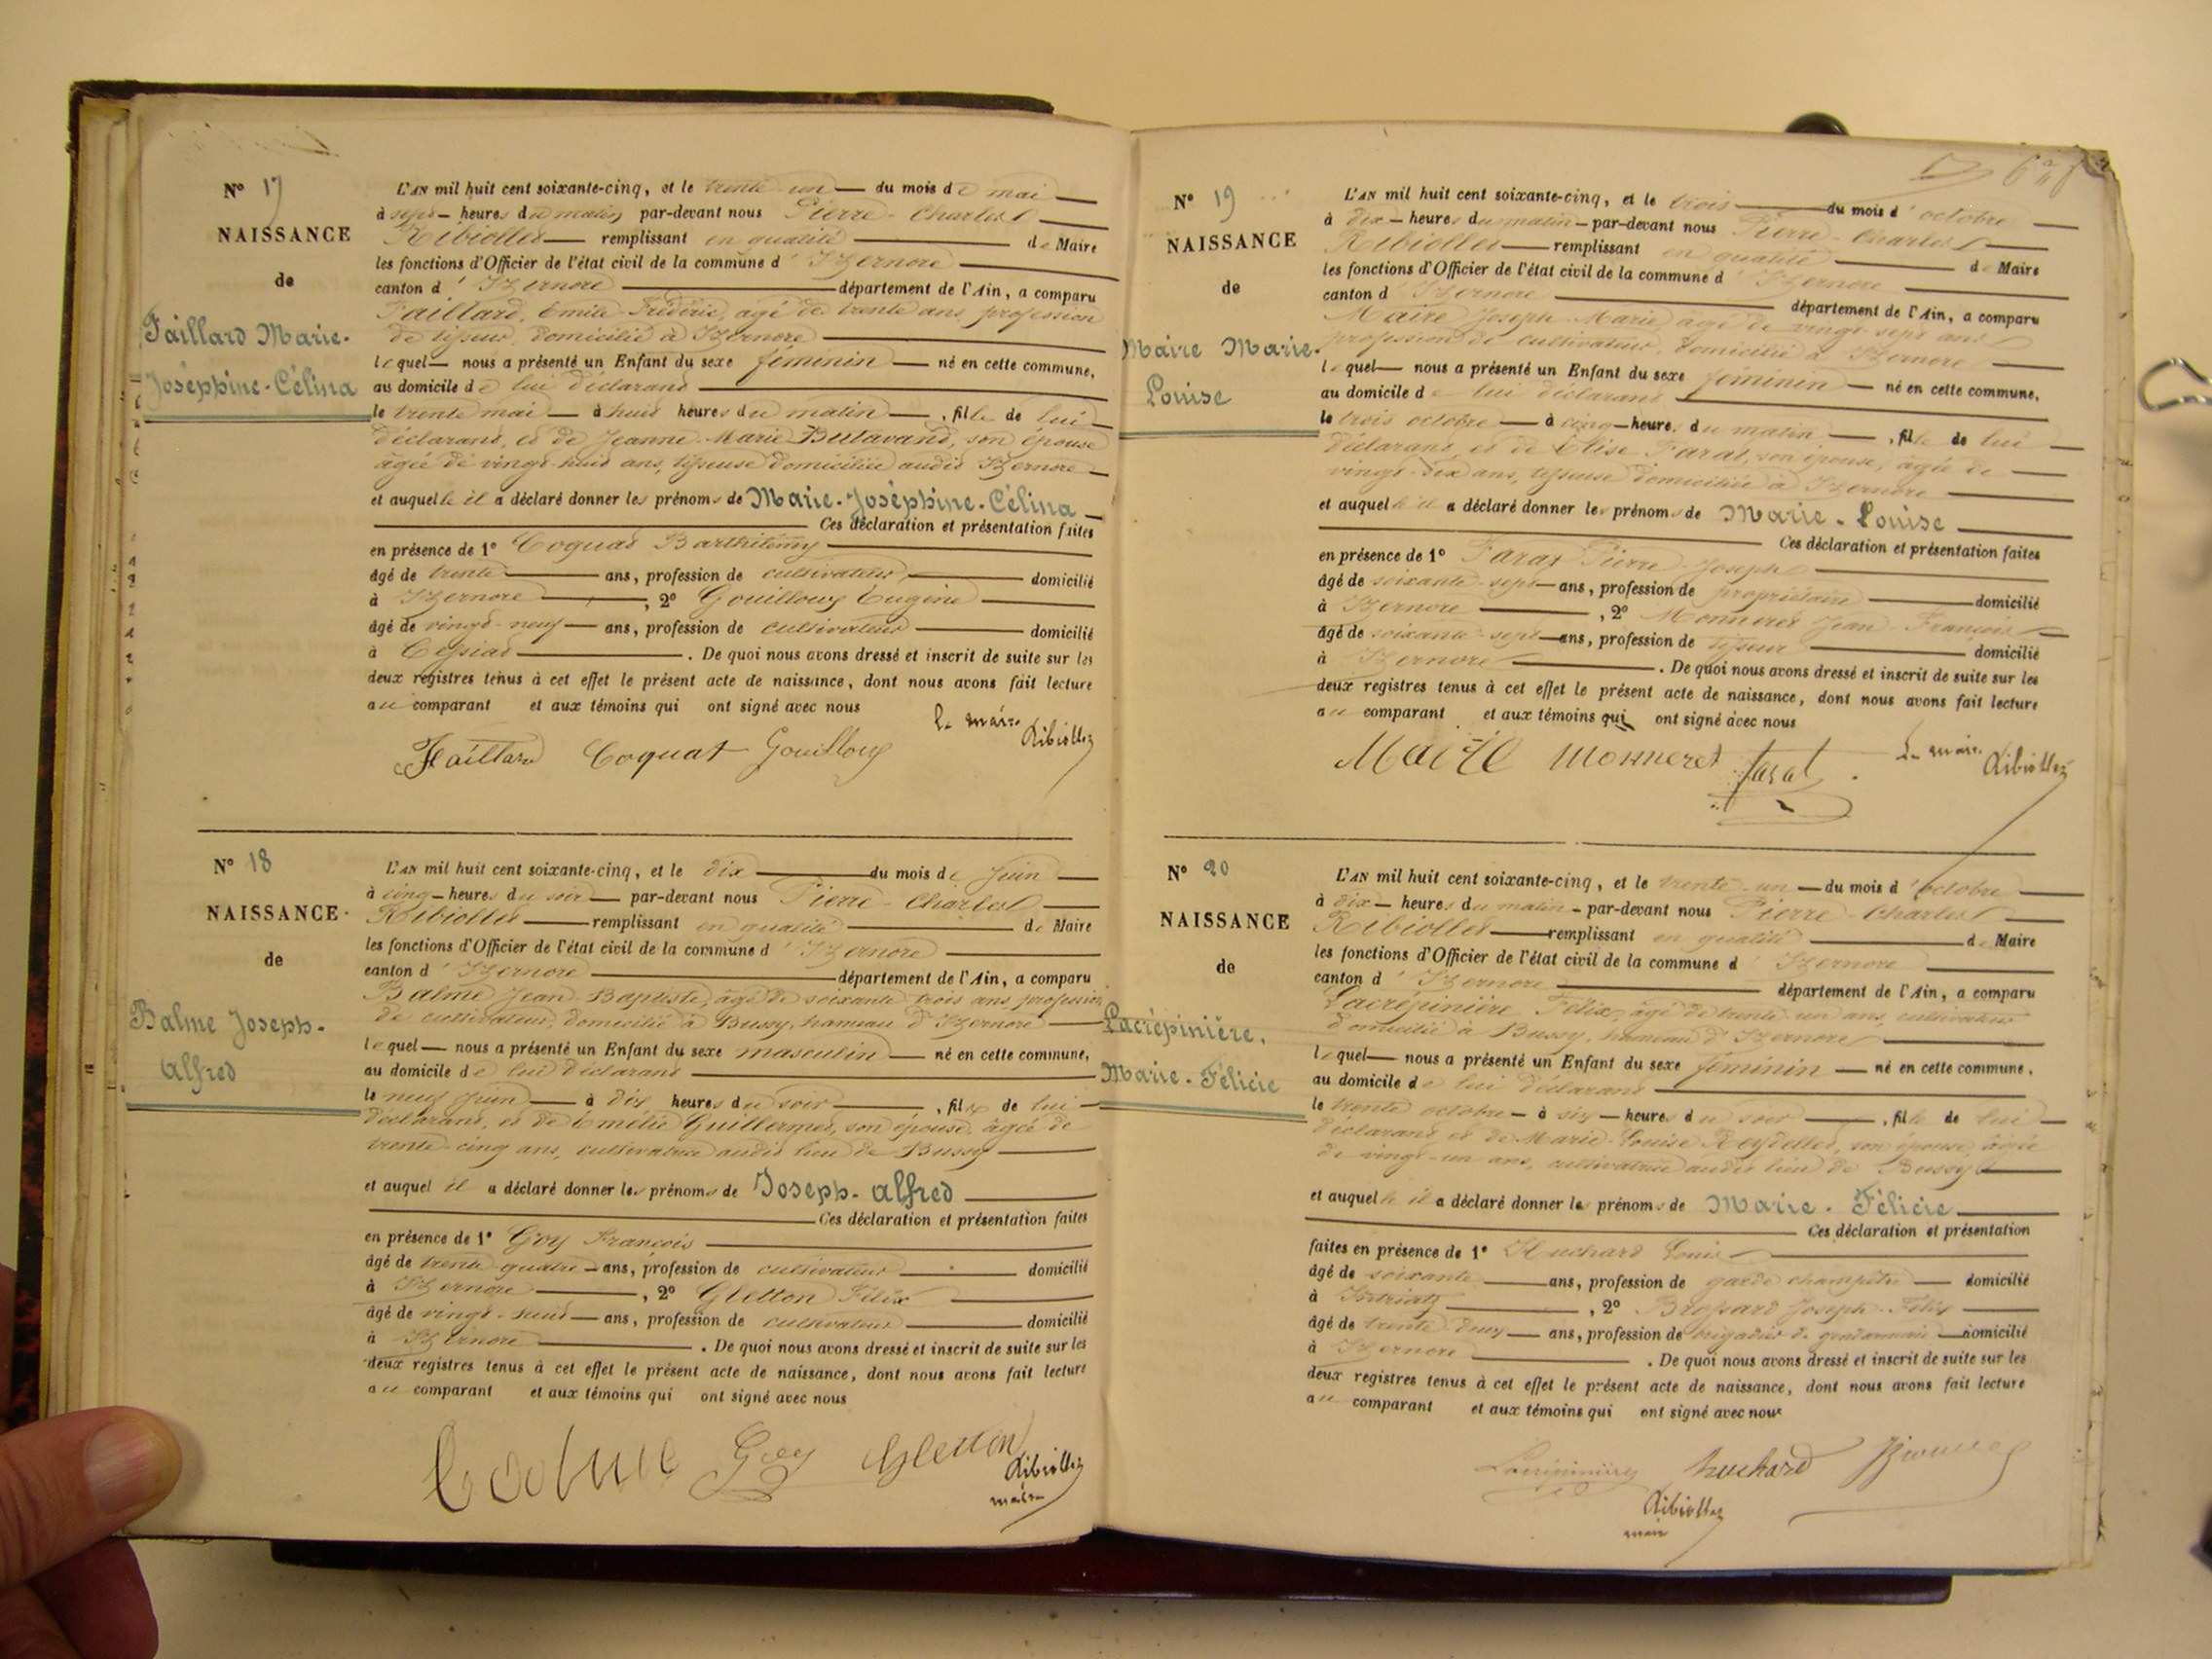 N° 17
NAISSANCE
de
Faillard Marie-
Joséphine-Célina
L'AN mil huit cent soixante-cinq, et le trente un du mois de mai
à sept heures du matin par-devant nous Pierre-Charles
Ribiollet remplissant en qualité de Maire
les fonctions d'Officier de l'état civil de la commune d'Izernore
canton d'Izernore département de l'Ain, a comparu
Faillard, Emile Frédéric, âgé de trente ans, profession
de tisseur, domicilié à Izernore
lequel nous a présenté un Enfant du sexe féminin né en cette commune,
au domicile de lui déclarant
le trente mai à huit heures du matin, fille de lui
déclarant, et de Jeanne-Marie Butavand, son épouse
âgée de vingt-huit ans, tisseuse domiciliée audit Izernore
et auquelle il a déclaré donner les prénoms de Marie-Joséphine-Célina
Ces déclaration et présentation faites
en présence de 1° Coquat Barthélemy
âgé de trente ans, profession de cultivateur domicilié
à Izernore, 2° Gouilloux Eugène
âgé de vingt-neuf ans, profession de cultivateur domicilié
à Ceissiat. De quoi nous avons dressé et inscrit de suite sur les
deux registres tenus à cet effet le présent acte de naissance, dont nous avons fait lecture
au comparant et aux témoins qui ont signé avec nous
le maire Ribiollet
Faillard Coquat Gouilloux
N° 18
NAISSANCE
de
Balme Joseph-
Alfred
L'AN mil huit cent soixante-cinq, et le dix du mois de juin
à cinq heures du soir par-devant nous Pierre-Charles
Ribiollet remplissant en qualité de Maire
les fonctions d'Officier de l'état civil de la commune d'Izernore
canton d'Izernore département de l'Ain, a comparu
Balme Jean-Baptiste, âgé de soixante trois ans, profession
de cultivateur, domicilié à Bussy, hameau d'Izernore
lequel nous a présenté un Enfant du sexe masculin né en cette commune,
au domicile de lui déclarant
le neuf juin à dix heures du soir, fils de lui
déclarant, et de Emélie Guillermet, son épouse, âgée de
trente-cinq ans, cultivatrice audit lieu de Bussy
et auquel il a déclaré donner les prénoms de Joseph-Alfred
Ces déclaration et présentation faites
en présence de 1° Goy François
âgé de trente quatre ans, profession de cultivateur domicilié
à Izernore, 2° Gletton Félix
âgé de vingt-huit ans, profession de cultivateur domicilié
à Izernore. De quoi nous avons dressé et inscrit de suite sur les
deux registres tenus à cet effet le présent acte de naissance, dont nous avons fait lecture
au comparant et aux témoins qui ont signé avec nous
Goy Gletton Ribiollet
maire
N° 19
NAISSANCE
de
Maire Marie-
Louise
L'AN mil huit cent soixante-cinq, et le trois du mois d'octobre
à dix heures du matin par-devant nous Pierre-Charles
Ribiollet remplissant en qualité de Maire
les fonctions d'Officier de l'état civil de la commune d'Izernore
canton d'Izernore département de l'Ain, a comparu
Maire Joseph-Marie, âgé de vingt-sept ans
profession de cultivateur, domicilié à Izernore
lequel nous a présenté un Enfant du sexe féminin né en cette commune,
au domicile de lui déclarant
le trois octobre à cinq heures du matin, fille de lui
déclarant, et de Elise Farat, son épouse, âgée de
vingt-six ans, tisseuse domiciliée à Izernore
et auquelle il a déclaré donner les prénoms de Marie-Louise
Ces déclaration et présentation faites
en présence de 1° Farat Pierre-Joseph
âgé de soixante-sept ans, profession de propriétaire domicilié
à Izernore, 2° Monneret Jean-François
âgé de soixante-sept ans, profession de tisseur domicilié
à Izernore. De quoi nous avons dressé et inscrit de suite sur les
deux registres tenus à cet effet le présent acte de naissance, dont nous avons fait lecture
au comparant et aux témoins qui ont signé avec nous
Maire Monneret Farat le maire Ribiollet
N° 20
NAISSANCE
de
Lacrépinière,
Marie-Félicie
L'AN mil huit cent soixante-cinq, et le trente-un du mois d'octobre
à dix heures du matin par-devant nous Pierre-Charles
Ribiollet remplissant en qualité de Maire
les fonctions d'Officier de l'état civil de la commune d'Izernore
canton d'Izernore département de l'Ain, a comparu
Lacrépinière Félix, âgé de trente-un ans, cultivateur
domicilié à Bussy, hameau d'Izernore
lequel nous a présenté un Enfant du sexe féminin né en cette commune,
au domicile de lui déclarant
le trente octobre à six heures du soir, fille de lui
déclarant et de Marie-Louise Reydellet, son épouse, âgée
de vingt-un ans, cultivatrice audit lieu de Bussy
et auquelle il a déclaré donner les prénoms de Marie-Félicie
Ces déclaration et présentation
faites en présence de 1° Huchard Louis
âgé de soixante ans, profession de garde champêtre domicilié
à, 2° Brossard Joseph-Félix
âgé de trente deux ans, profession de brigadier de gendarmerie domicilié
à Izernore. De quoi nous avons dressé et inscrit de suite sur les
deux registres tenus à cet effet le présent acte de naissance, dont nous avons fait lecture
au comparant et aux témoins qui ont signé avec nous
Lacrépinière Huchard
Ribiollet
maire